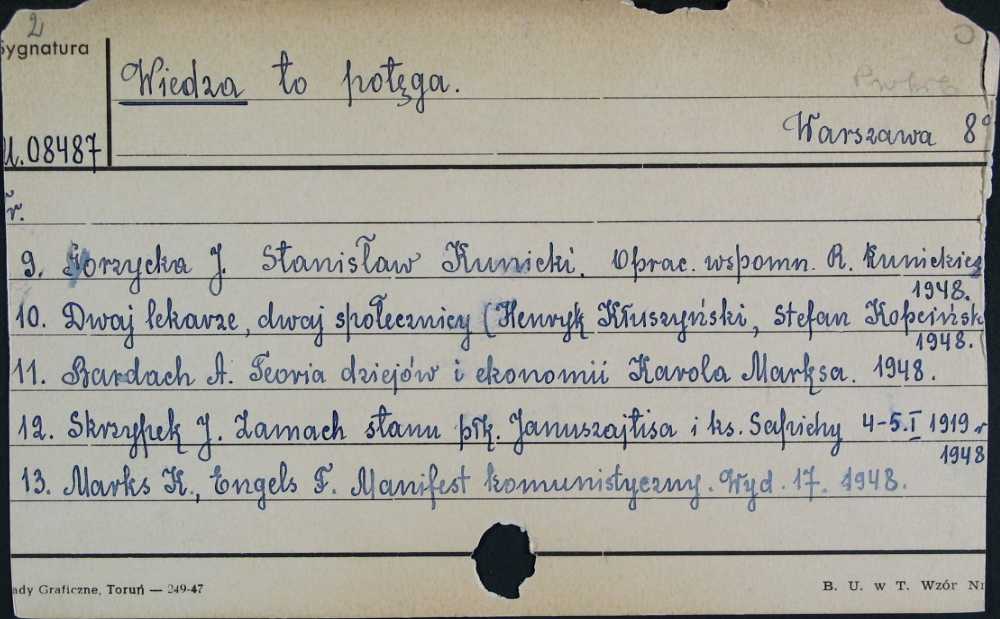 2
Sygnatura
Wiedza to potęga.
Warszawa 8°
U.08487
r.
9. Gorzycka J. Stanisław Kunicki. Oprac. wspomn. R. Kunickiej
1948.
10. Dwaj lekarze, dwaj społecznicy (Henryk Kłuszyński, Stefan Kopcińsk
1948.
11. Bardach A. Teoria dziejów i ekonomii Karola Marksa. 1948.
12. Skrzypek J. Zamach stanu płk. Januszajtisa i ks. Sapiehy 4-5.I 1919 r
1948
13. Marks K., Engels F. Manifest komunistyczny. Wyd. 17. 1948.
ady Graficzne, Toruń — 249-47
B. U. w T. Wzór Nr